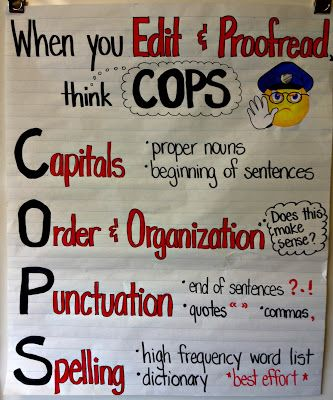 When you Edit & Proofread,
think COPS
Capitals
•proper nouns
•beginning of sentences
Order & Organization
Does this
make
sense?
Punctuation
•end of sentences ?.!
•quotes “ ” •commas,
Spelling
•high frequency word list
•dictionary *best effort*